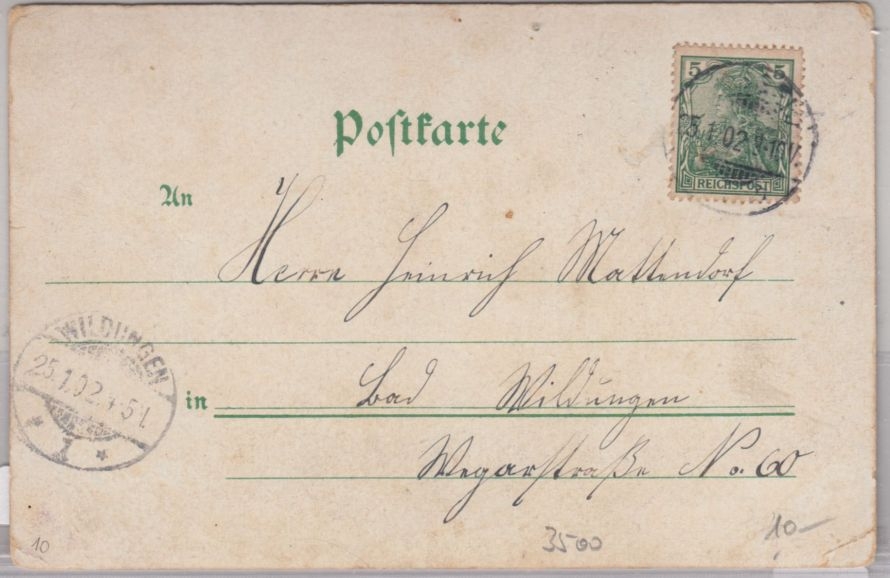 5 5
25.1.02. 9-10V.
REICHSPOST
Postkarte
An
Herrn Heinrich Mattendorf
WILDUNGEN
25.1.02. 4-5N.
in Bad Wildungen
Wegarstraße No. 60
10
3500
10-